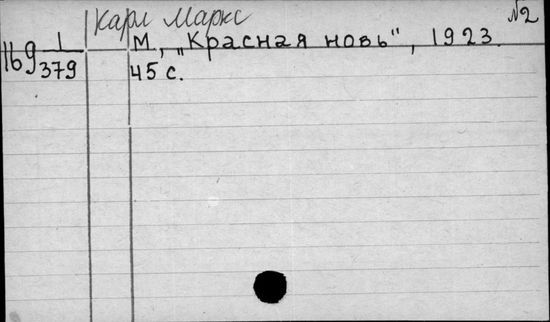 Карл Маркс
№2
169 1/379
М., „Красная новь", 1923.
45 с.